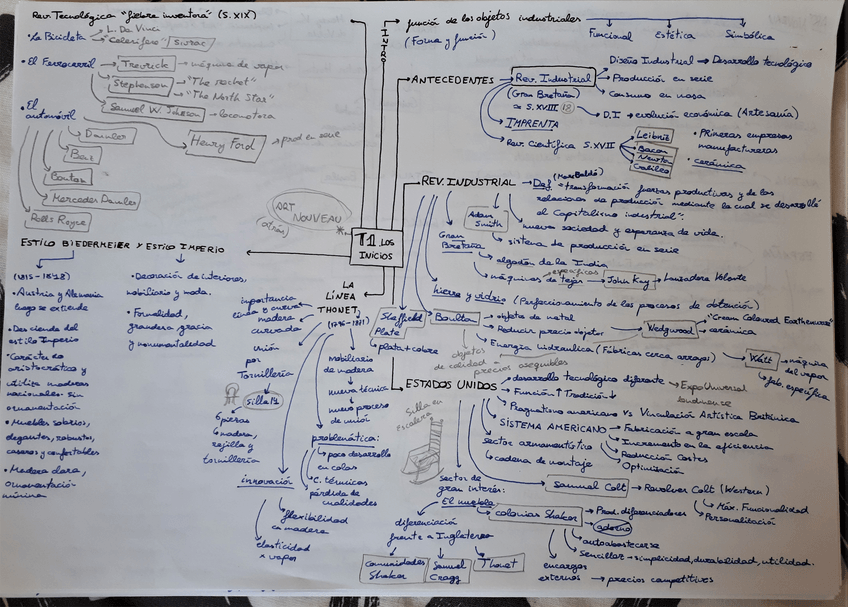 Rev. Tecnológica "fiebre inventora" (S. XIX)
• La Bicicleta
L. Da Vinci
"Celerífero"
Sivrac
• El Ferrocarril
Trevrick
máquina de vapor
Stephenson
"The rocket"
"The North Star"
Samuel W. Johnson
locomotora
• El automóvil
Daimler
Benz
Bouton
Mercedes Daimler
Rolls Royce
Henry Ford
prod en serie
ART NOUVEAU
(otras)
T1 LOS INICIOS
INTRO
función de los objetos industriales
(Forma y función)
Funcional
Estética
Simbólica
ANTECEDENTES
Rev. Industrial
(Gran Bretaña)
S. XVIII
18
Diseño Industrial → Desarrollo tecnológico
Producción en serie
Consumo en masa
D.I → evolución económica (Artesanía)
IMPRENTA
Rev. Científica S. XVII
Leibniz
Bacon
Newton
Galileo
• Primeras empresas manufactureras
• cerámica
REV. INDUSTRIAL
Def.
"transformación fuerzas productivas y de las
relaciones de producción mediante la cual se desarrolló
el Capitalismo industrial".
nueva sociedad y esperanza de vida.
Adam Smith
sistema de producción en serie
Gran Bretaña
algodón de la India
máquinas de tejer
específicas
John Kay
Lanzadera Volante
hierro y vidrio (Perfeccionamiento de los procesos de obtención)
Sheffield Plate
plata + cobre
Boulton
objetos de metal
Reducir precio objetos
Energía hidraúlica (Fábricas cerca arroyos)
objetos de calidad
precios asequibles
Wedgwood
"Cream Coloured Earthenware"
cerámica
Watt
máquina del vapor
fab. específica
ESTADOS UNIDOS
desarrollo tecnológico diferente
Expo Universal londinense
Función ↑ Tradición ↓
Pragmatismo americano vs Vinculación Artística Británica
SISTEMA AMERICANO
Fabricación a gran escala
Incremento en la eficiencia
Reducción Costes
Optimización
sector armamentístico
cadena de montaje
Samuel Colt
Revolver Colt (Western)
Máx. Funcionalidad
Personalización
Silla en escalera
sector de gran interés:
El mueble
colonias Shaker
Prod. diferenciadores
adorno
autoabastecerse
Sencillez → simplicidad, durabilidad, utilidad.
encargos externos → precios competitivos
diferenciación frente a Inglaterra
Comunidades Shaker
Samuel Cragg
Thonet
ESTILO BIEDERMEIER Y ESTILO IMPERIO
(1815 - 1848)
• Austria y Alemania
luego se extiende
• Desciende del
estilo Imperio
• Carácter no
aristocrático y
utiliza maderas
nacionales sin
ornamentación
• Muebles sobrios,
elegantes, robustos,
caseros y confortables
• Madera clara,
ornamentación
mínima
• Decoración de interiores,
mobiliario y moda.
• Formalidad,
grandeza, gracia
y monumentalidad
LA LÍNEA THONET
(1796 - 1871)
importancia
línea y curva
madera
curvada
unión
por
Tornillería
Silla 14
6 piezas
madera,
rejilla y
tornillería
innovación
flexibilidad
en madera
elasticidad
x vapor
mobiliario
de madera
nueva técnica
nuevo proceso
de unión
problemática:
poco desarrollo
en colas
C. térmicas
pérdida de
cualidades